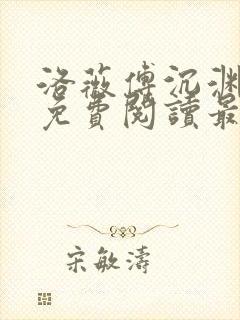 洛薇傅沉渊
免費閱讀最
宋敏濤